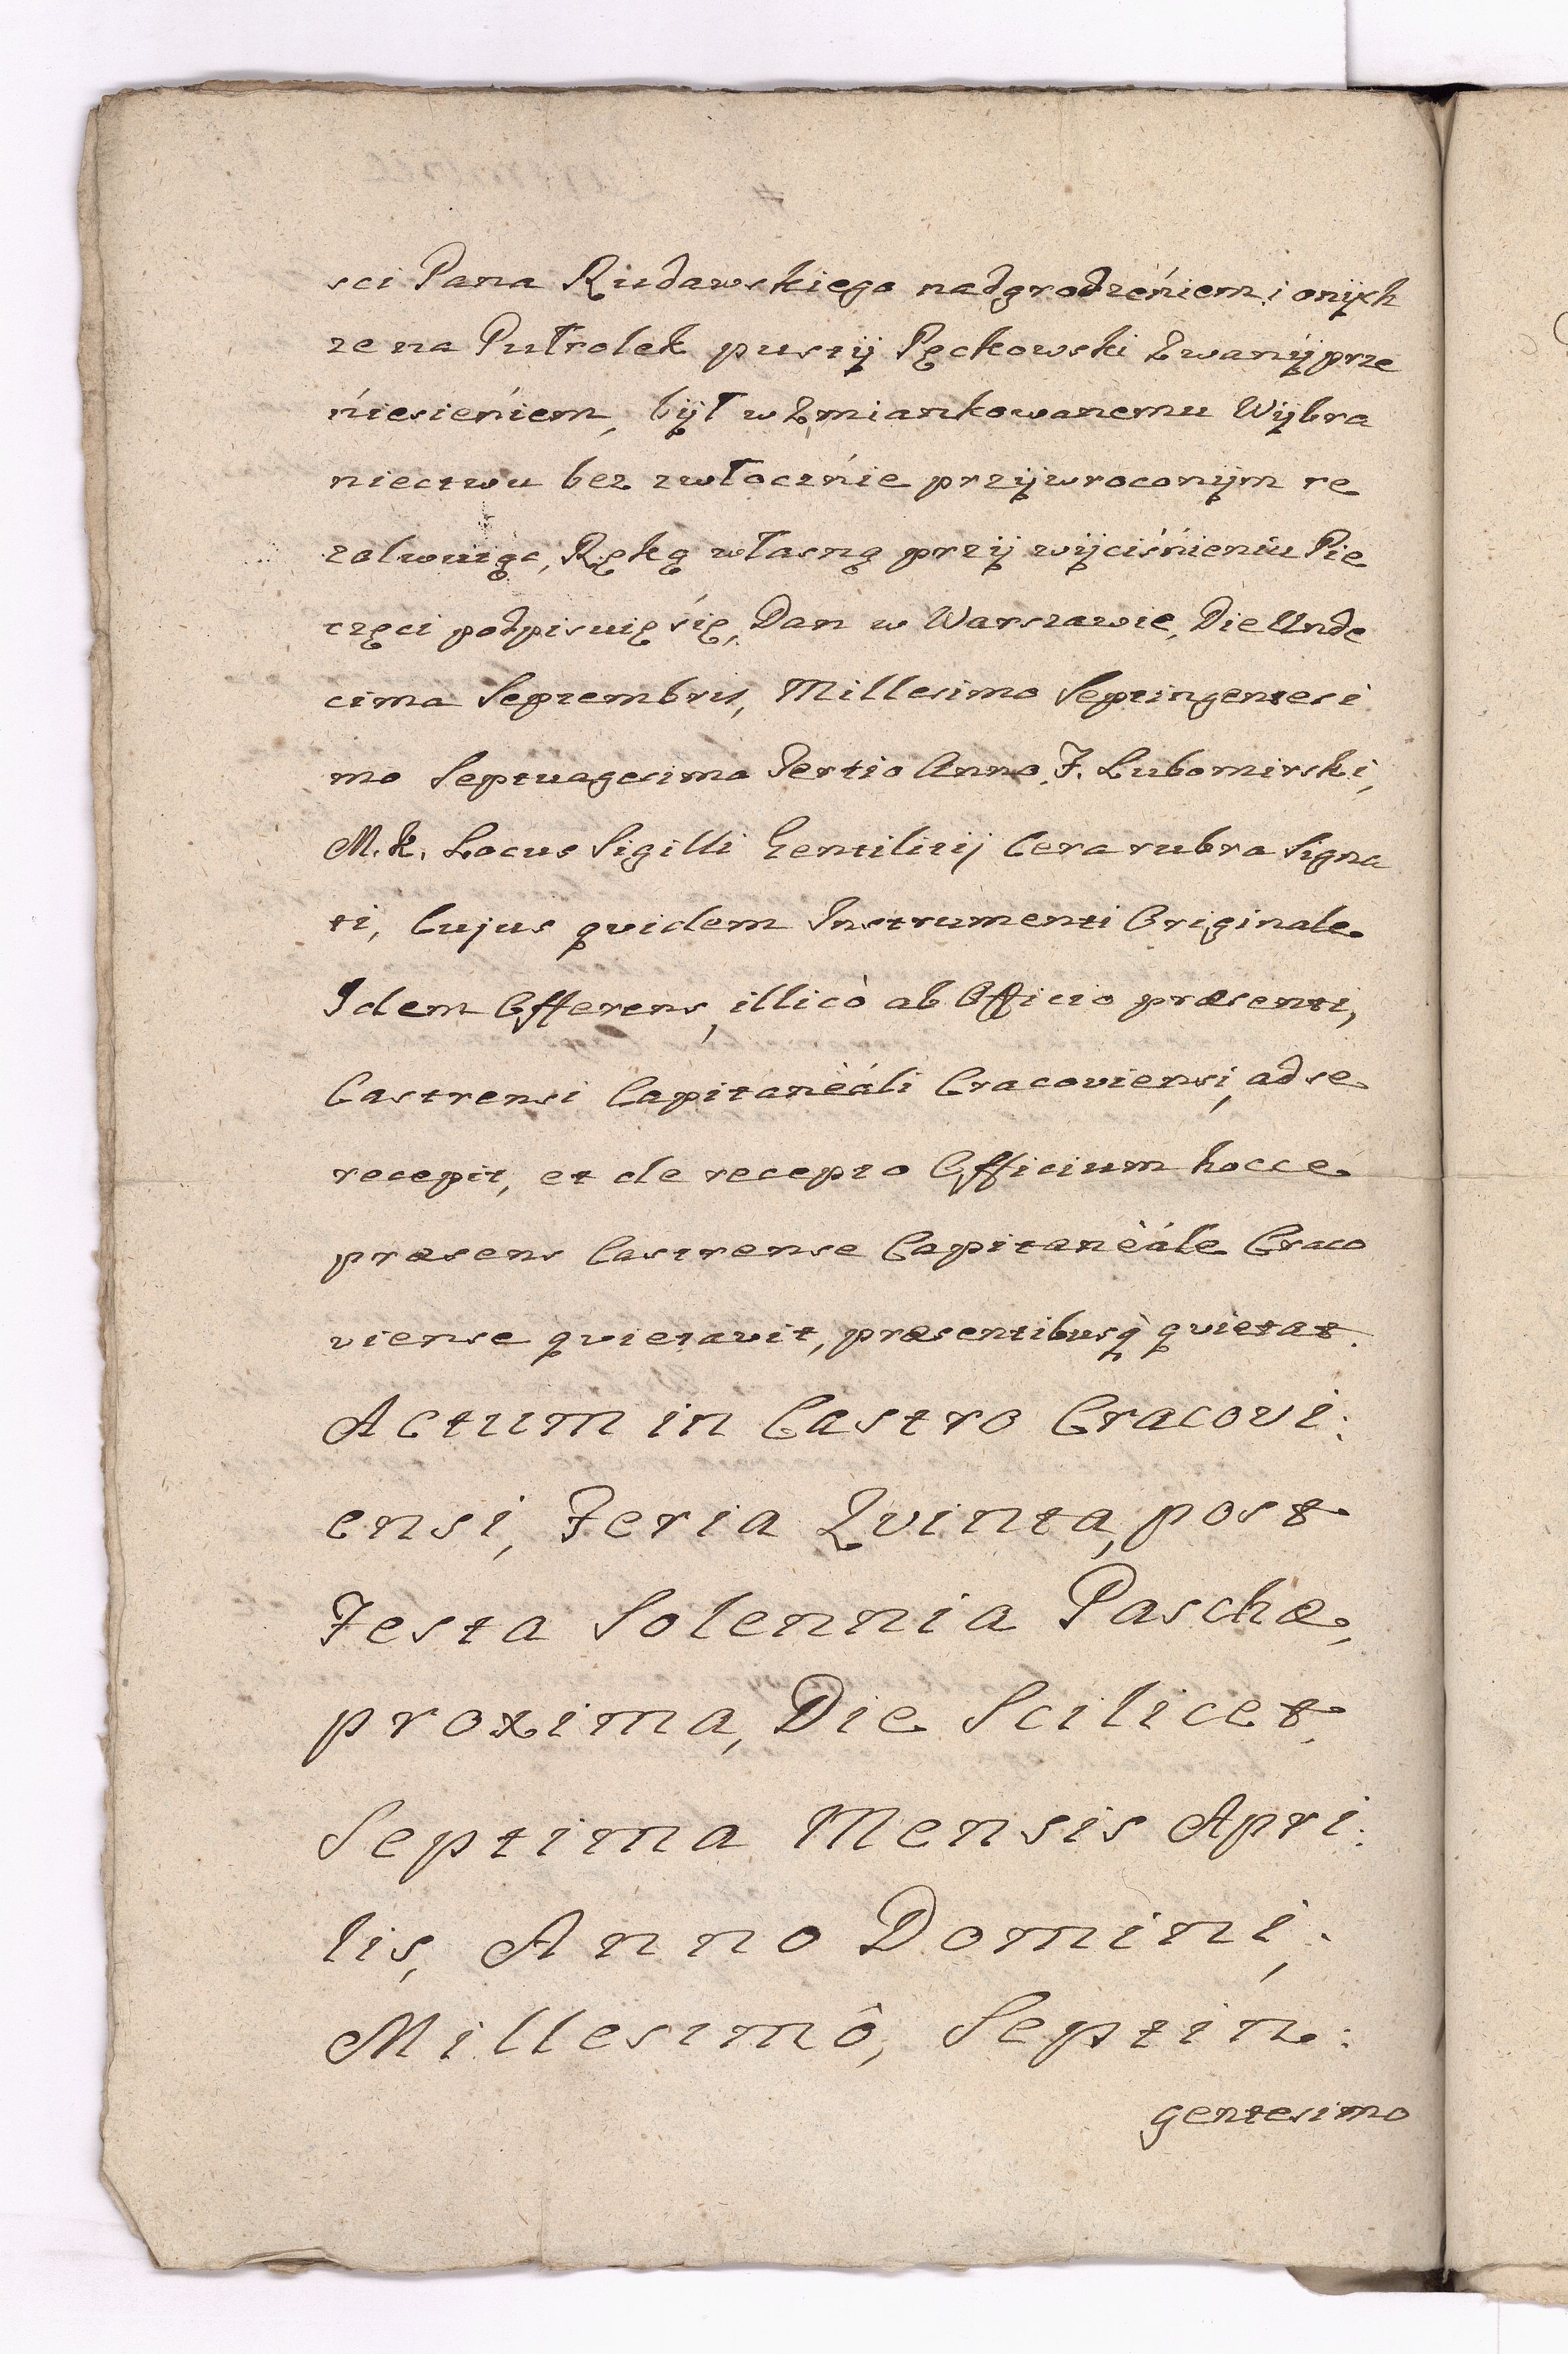 sci Pana Rudawskiego nadgrodzéńiem i onÿch
ze na Pułrolek pustÿ Pęckowski Zwanÿ prze
ńiesieńiem, bÿł wZmiankowanemu Wÿbra
niectwu bez zwłocznie przÿwroconÿm re
zolwuiąc, Ręką własną przÿ wÿciśńieniu Pie
częci podpisuię śię, Dan w Warszawie, Die Unde
cima Septembris, Millesimo Septingentesi
mo Septuagesimo Tertio Anno, F. Lubomirski,
M. k. Locus Sigilli Gentilitij Cera rubra Signa
ti, Cujus quidem Instrumenti Originale
Idem Offerens, illicò ab Officio præsenti,
Castrensi Capitanèáli Cracoviensi, ad se
recepit, et de recepto Officium hocce
præsens Castrense Capitanèále Craco
viense quietavit, præsentibusq̀ quietat.
Actum in Castro Cracovi:
ensi, Feria Quinta, post
Festa Solennia Paschæ,
proxima, Die Scilicet,
Septima Mensis Apri:
lis, Anno Domini,
Millesimô, Septin:
gentesimo